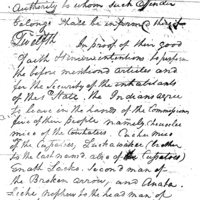 Authority to whom such offender
belongs shall be informed thereof
Twelfth
In proof of their good
faith & sincere intentions to perform
the before mentioned articles and
for the security of the inhabitants
of this State, the Indians agree
to leave in the hands of the Commissioners
five of their people namely
mico of the Cowetas, Cuchemico
of the Cupatoes,
to the last named also of the Cupatoes
Enath Lacko. Second man of
the Broken arrow, and
nephew to the head man of